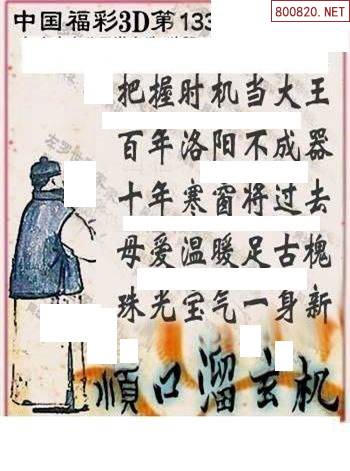 中国福彩3D第133
800820.NET
把握时机当大王
百年洛阳不成器
十年寒窗将过去
母爱温暖足古槐
珠光宝气一身新
顺口溜玄机